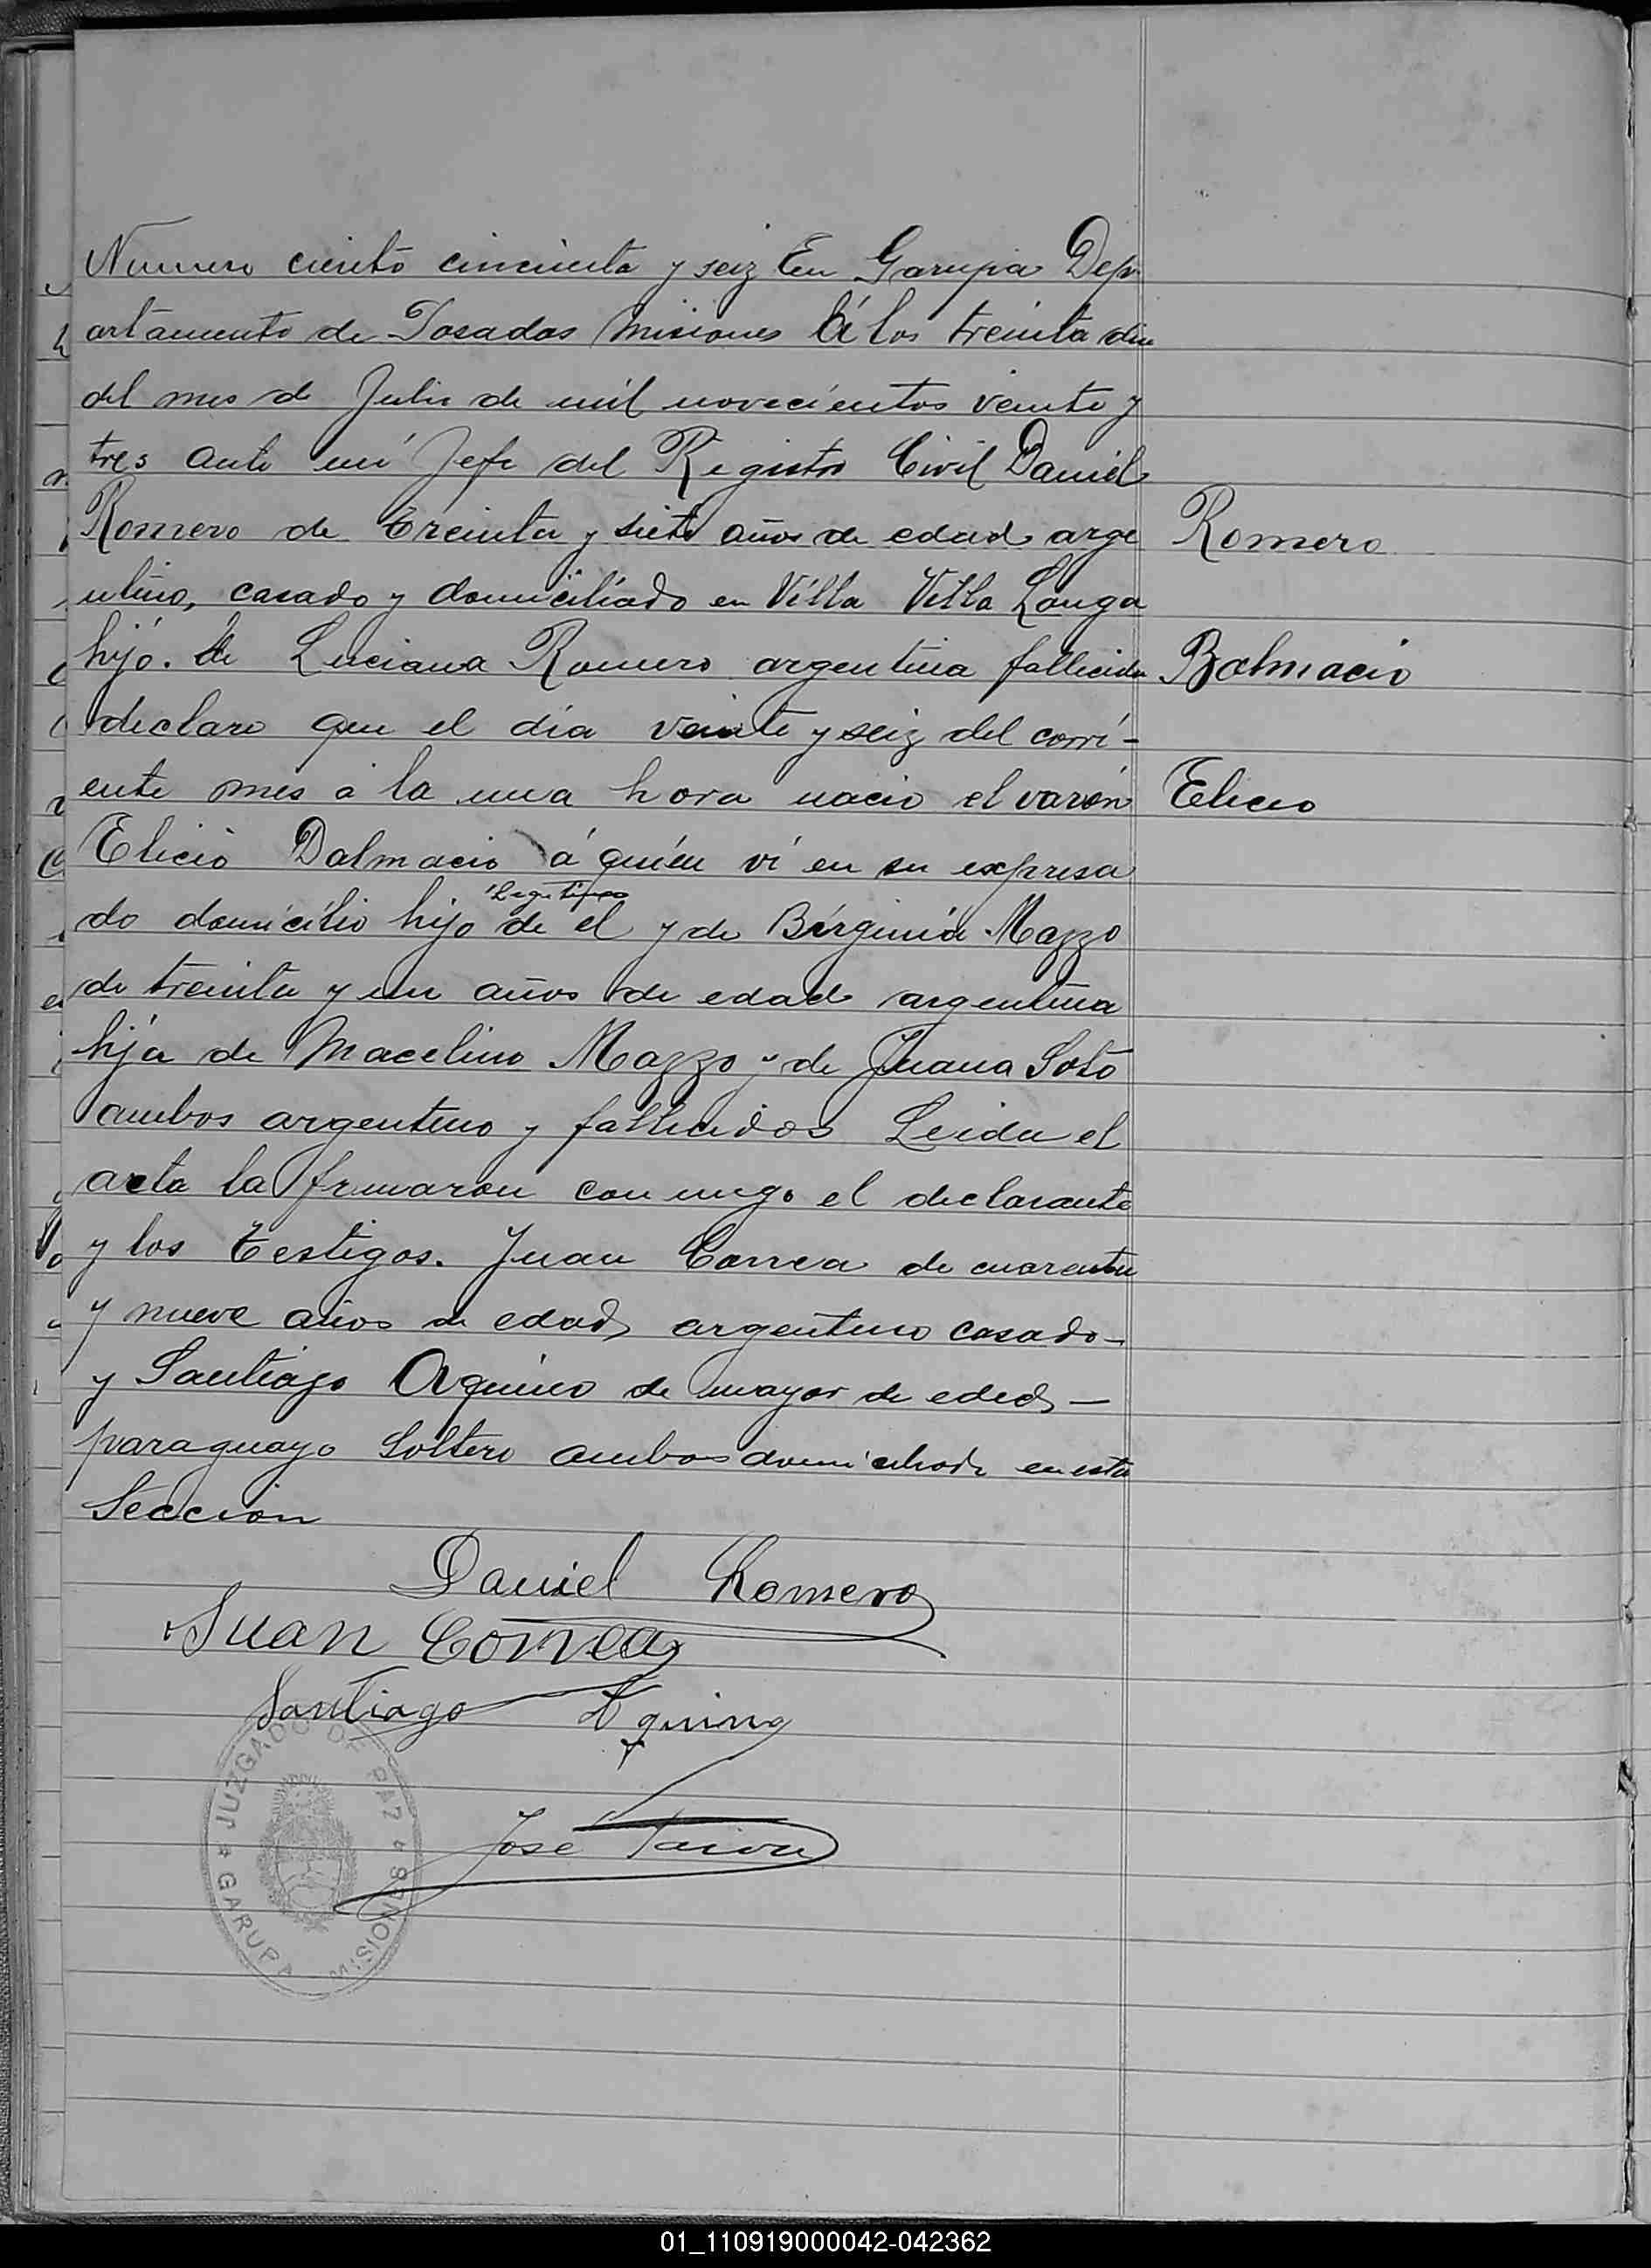 Numero ciento cincuenta y seiz En Garupa Dep-
artamento de Posadas Misiones Á los treinta dias
del mes de Julio de mil novecientos veinte y
tres ante mí Jefe del Registro Civil Daniel
Romero de treinta y siete años de edad arge
Romero
ntino, casado y domiciliado en Villa Villa Longa
hijo. de Luciana Romero argentina fallecida
Balmacio
declaro que el día veinte y seiz del corri-
ente mes a la una hora nacio el varón
Elicio
Elicio Dalmacio á quién ví en su expresa
Legitimo
do domicilio hijo de el y de Bírginia Mazzo
de treinta y un años de edad argentina
hija de Macelino Mazzo y de Juana Soto
ambos argentino y fallecidos Leida el
acta la firmaron conmigo el declarante
y los testigos. Juan Correa de cuarenta
y nueve años de edad argentino casado-
y Santiago Aquino de mayor de eded -
paraguayo Soltero ambos domiciliado en esta
Seccion
Daniel Romero
Juan Correa
Santiago Aquino
José
JUZGADO DE PAZ
GARUPA MISIONES
01_110919000042-042362